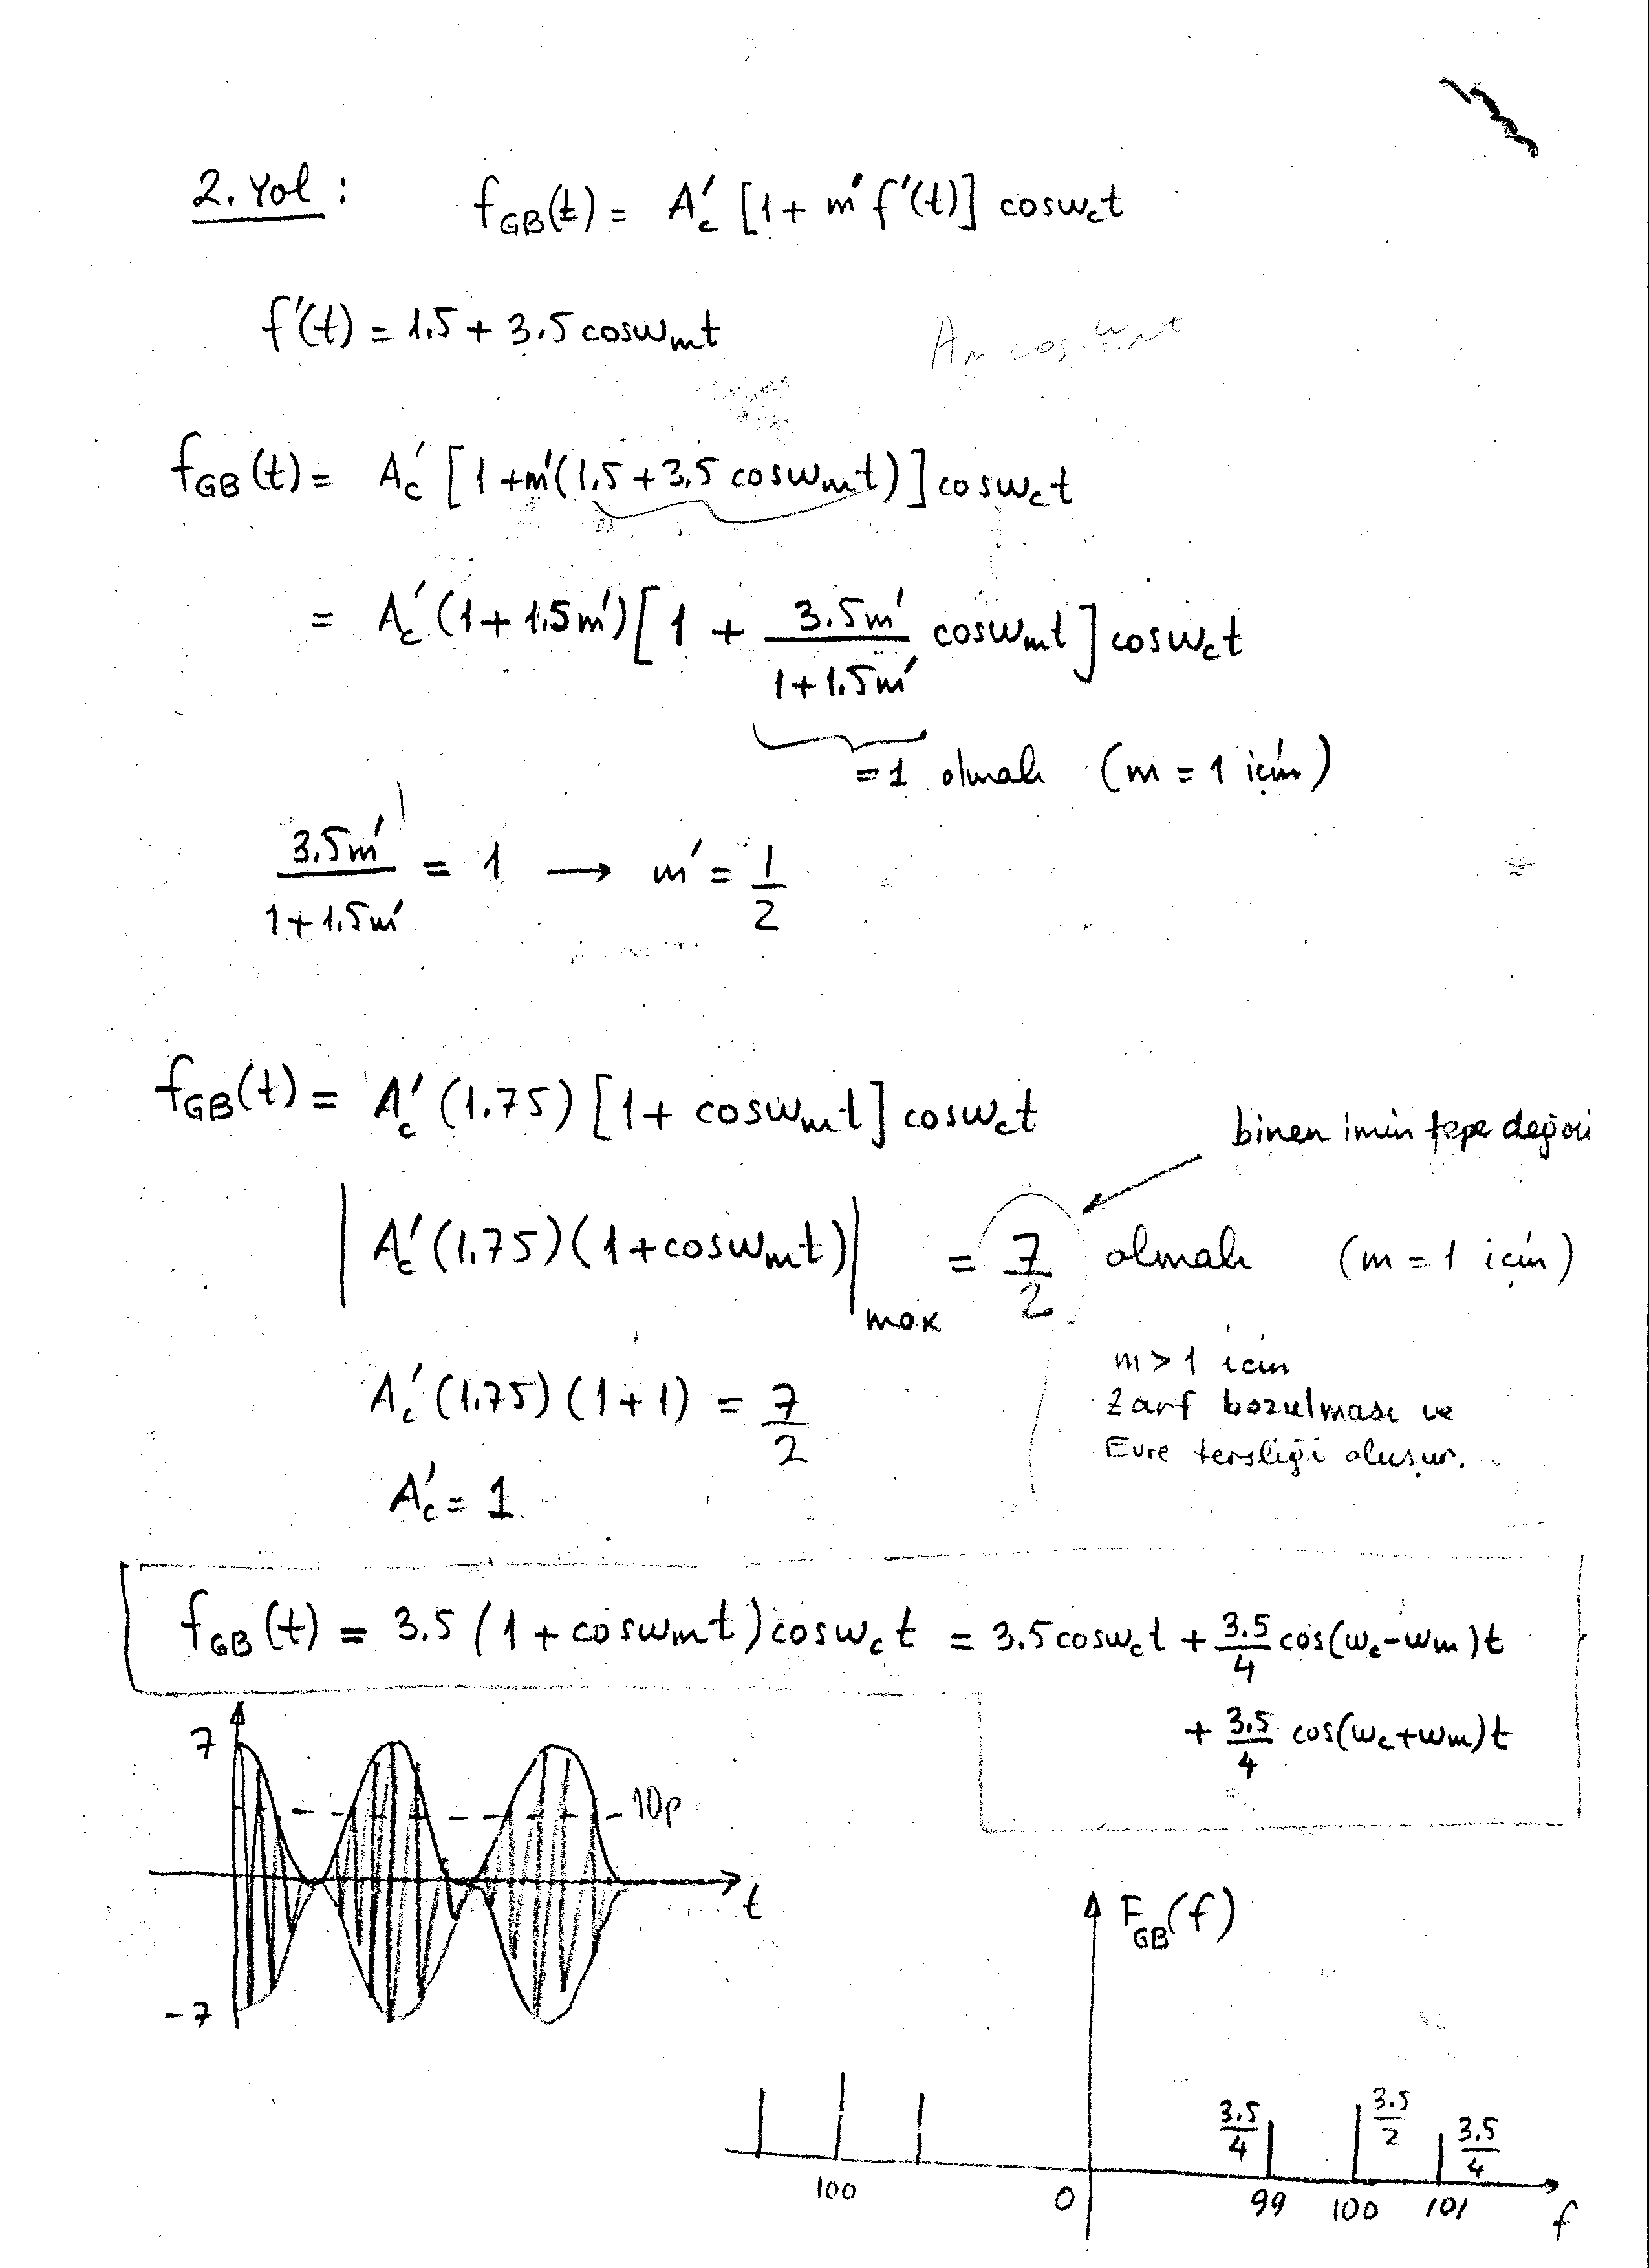 2. Yol : f_GB(t) = A_c' [1 + m' f'(t)] cosw_ct
f'(t) = 1.5 + 3.5 cosw_mt
A_m cos w_mt
f_GB(t) = A_c' [1 + m'(1.5 + 3.5 cosw_mt)] cosw_ct
= A_c' (1 + 1.5m') [1 + 3.5m' / (1 + 1.5m') cosw_mt] cosw_ct
= 1 olmalı (m = 1 için)
3.5m' / (1 + 1.5m') = 1 → m' = 1/2
f_GB(t) = A_c' (1.75) [1 + cosw_mt] cosw_ct
binen imin tepe değeri
|A_c' (1.75) (1 + cosw_mt)|_max = 7/2 olmalı (m = 1 için)
A_c' (1.75) (1 + 1) = 7/2
m > 1 için
Zarf bozulması ve
Evre tersliği oluşur.
A_c' = 1
f_GB(t) = 3.5 (1 + cosw_mt) cosw_ct = 3.5 cosw_ct + 3.5/4 cos(w_c - w_m)t
+ 3.5/4 cos(w_c + w_m)t
7
10p
t
-7
F_GB(f)
3.5/4 3.5/2 3.5/4
100 0 99 100 101 f